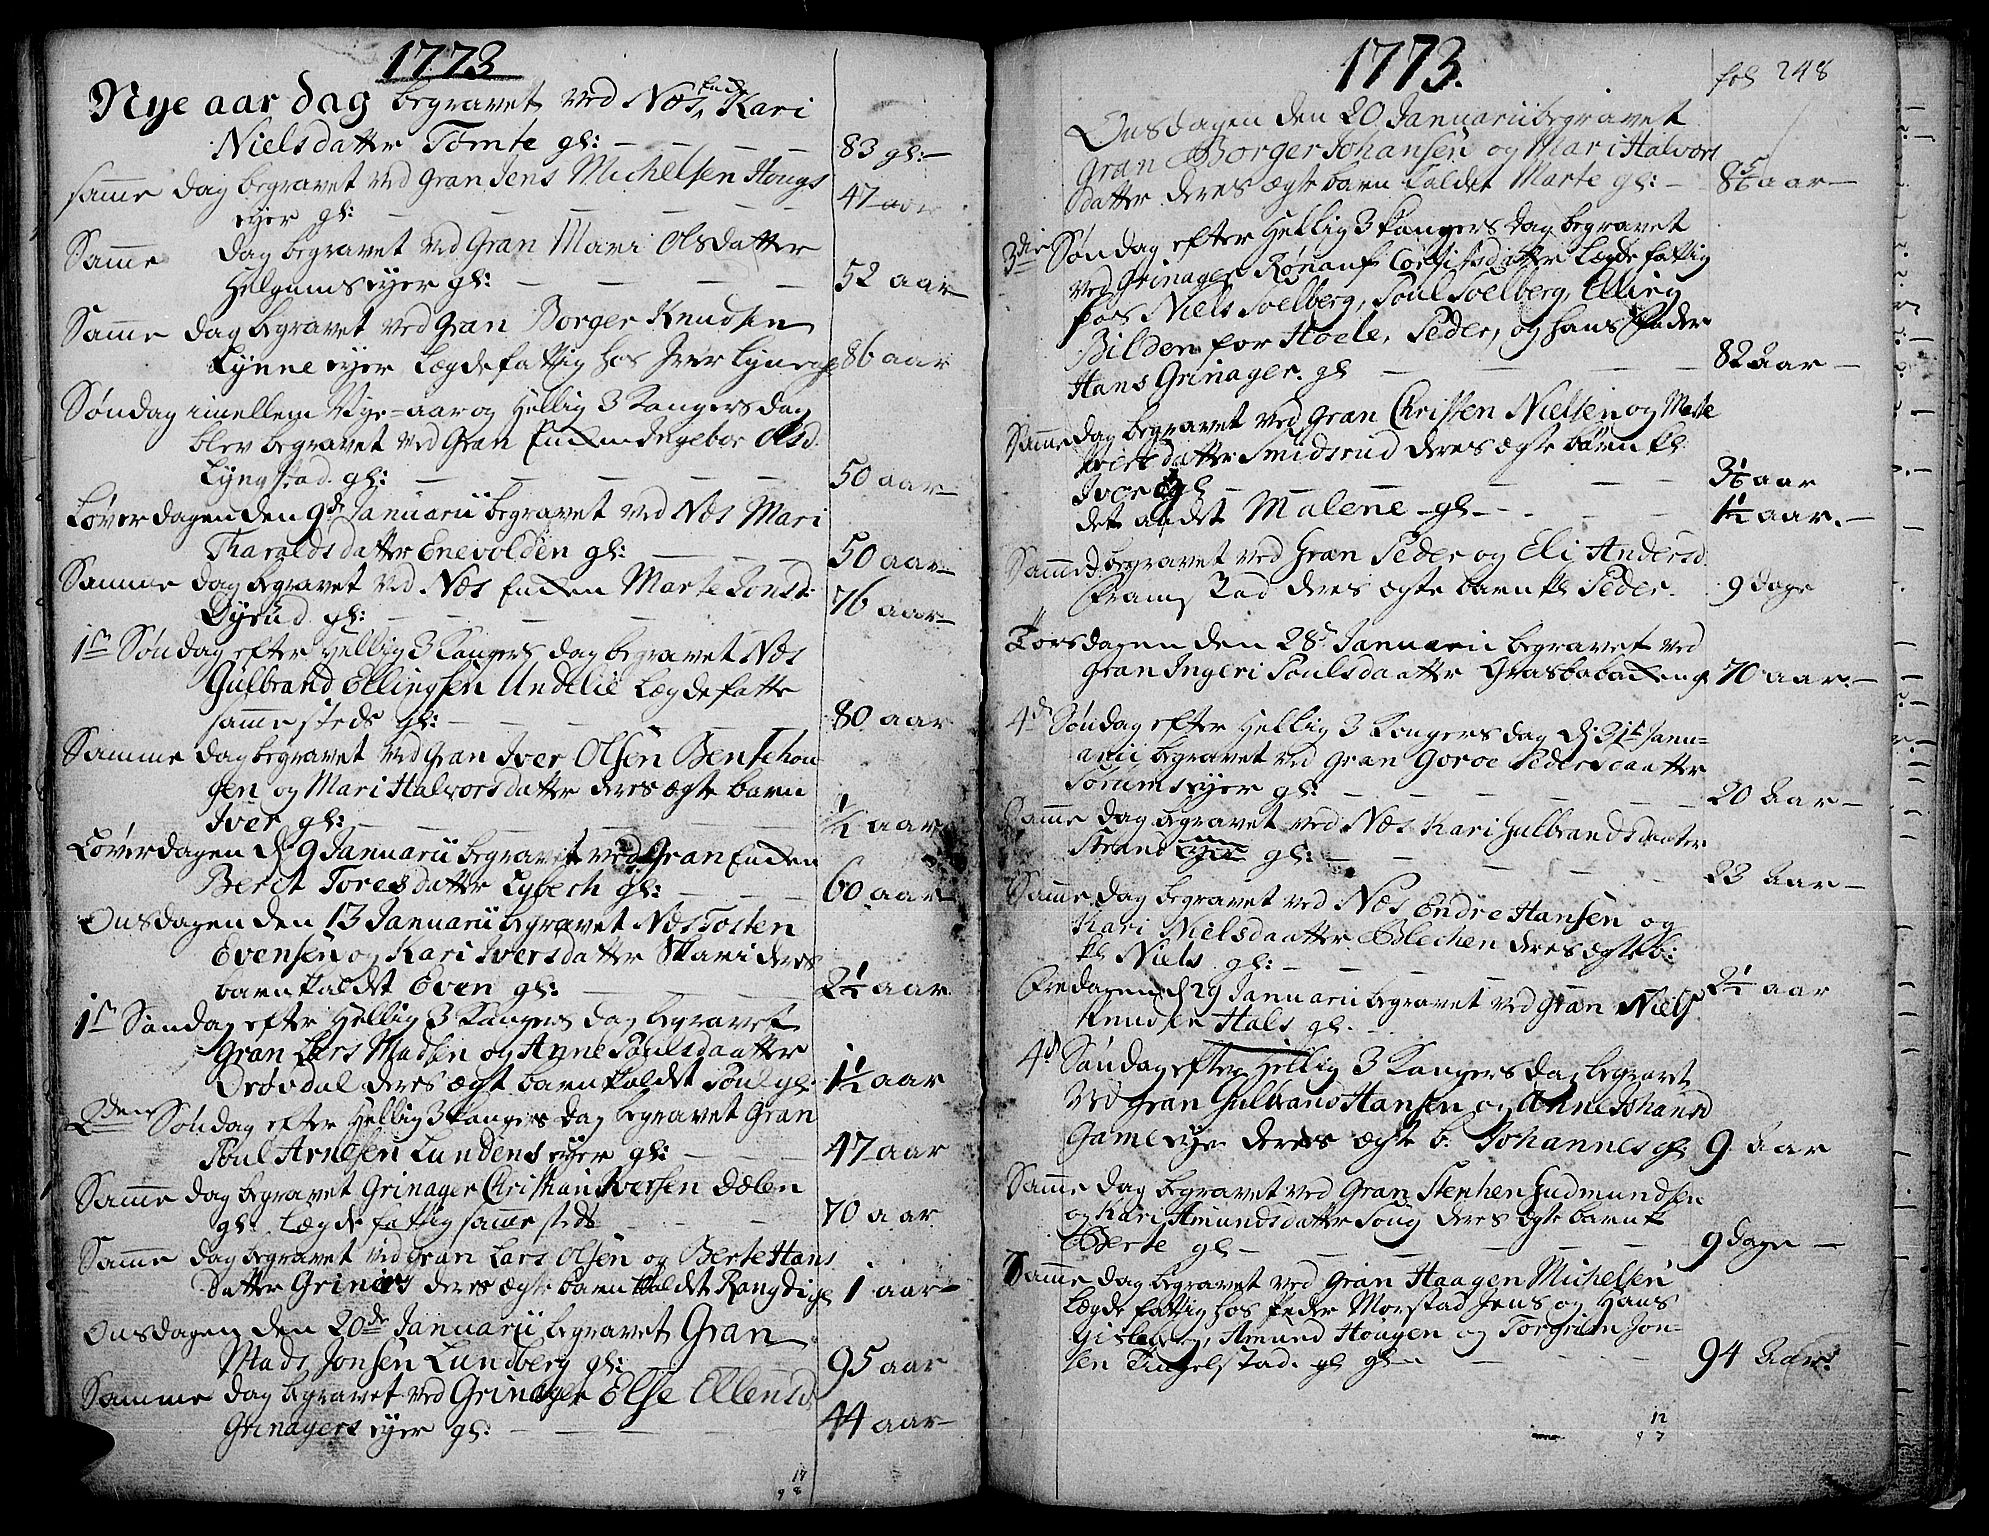 1773
Nye aar dag begravet ved Næs, Enk Kari
Nielsdatter Tømte gl: 83 gl:
samme dag begravet ved Gran Jens Michelsen Hougs
eyer gl: 47 aar
Samme dag begravet ved Gran Mari Olsdatter
Helgums eyer gl: 52 aar
Samme dag begravet ved Gran Borger Knudsen
Lynne eyer Lægdefattig hos Iver Lynne gl 86 aar
Søndag imellem Nye-aar og Hellig 3 Kongers dag
blev begravet ved Gran Enken Ingebor Olsd.
Lyngstad. gl: 50 aar
Løverdagen den 9de Januarii begravet ved Næs Mari
Tharaldsdatter Enevolden gl: 50 aar
Samme dag begravet ved Næs Enken Marte Jonsd:
Dyrud. gl: 76 aar
1ste Søndag efter Hellig 3 Kongers dag begravet Næs
Gulbrand Ellingsen Undelie Lægdefatte
samme steds gl: 80 aar
Samme dag begravet ved Gran Iver Olsen Bentehou
gen og Mari Halvorsdatter deres ægte barn
Iver gl: 1/4 aar
Løverdagen d. 9 Januarii begravet ved Gran Enken
Berit Toresdatter Lybech gl: 60 aar
Onsdagen den 13 Januarii begravet Næs Tosten
Evensen og Kari Iversdatter Skari deres
barn kaldet Even gl: 2 1/4 aar
1ste Søndag efter Hellig 3 Kongers dag begravet
Gran Lars Madsen og Anne Poulsdaatter
Drøvdal deres ægt barn kaldet Poul gl. 1 1/2 aar
2den Søndag efter Hellig 3 Kongers dag begravet Gran
Poul Arnesen Lundens eyer gl: 47 aar
Samme dag begravet Grinager Christian Iversen Dælen
gl. Lægdefattig samme steds 70 aar
Samme dag begravet ved Gran Lars Olsen og Berte Hans
datter deres ægte barn kaldet Rangdi gl 1 aar
Onsdagen den 20de Januarii begravet Gran
Mads Jonsen Lundberg gl: 95 aar
Samme dag begravet ved Grinager Else Ellensd.
Grinagers eyer gl: 44 aar
1773.
fol 248
Onsdagen den 20 Januarii begravet
Gran Borger Johansen og Mari Halvors
datter deres ægte barn kaldet Marte gl: 8 5/6 aar
3die Søndag efter Hellig 3 Kongers dag begravet
ved Grinager Rønauf Lægdefattig
hos Niels Soelberg, Poul Soelberg, Elling
Bilden for Hoele, Peder, og Hans
Hans Grinager. gl 82 Aar
Samme dag begravet ved Gran Christen Nielsen og Marte
Iversdatter Smidsrud deres ægte børn kl
Iver gl 3 1/6 aar
det andet Malene gl 1 1/2 aar.
Samme d. begravet ved Gran Peder og Eli Andersd.
Framstad deres ægte barn kl Peder. 9 dage
Torsdagen den 28de Januarii begravet ved
Gran Ingeri Poulsdaatter gl 70 aar.
4de Søndag efter Hellig 3 Kongers dag d. 31te Janu=
arii begravet ved Gran Goroe Pedersdaatter
Sørums eyer gl: 20 Aar
Samme dag begravet ved Næs Kari Gulbrandsdaater
Strand eyer gl: 23 Aar
Samme dag begravet ved Næs Endre Hansen og
Kari Nielsdaatter Blechen deres ægte b:
kl Niels gl: 2 1/4 aar
Fredagen d 29 Januarii begravet ved Gran Niels
Knudsen Hals gl.
4de Søndag efter Hellig 3 Kongers dag begravet
ved Gran Gulbrand Hansen og Anne Johansd
Game eye deres ægte b. Johannes gl 9 Aar
Samme dag begravet ved Gran Stephen Gudmundsen
og Kari Amundsdatter deres ægte barn k
Berte gl 9 dage
Samme dag begravet ved Gran Haagen Michelsen
Lægdefattig hos Peder Morstad Jens og Hans
Gisleberg, Amund Hougen og Torgrim Jon=
sen Tingelstad. gl gl 94 Aar